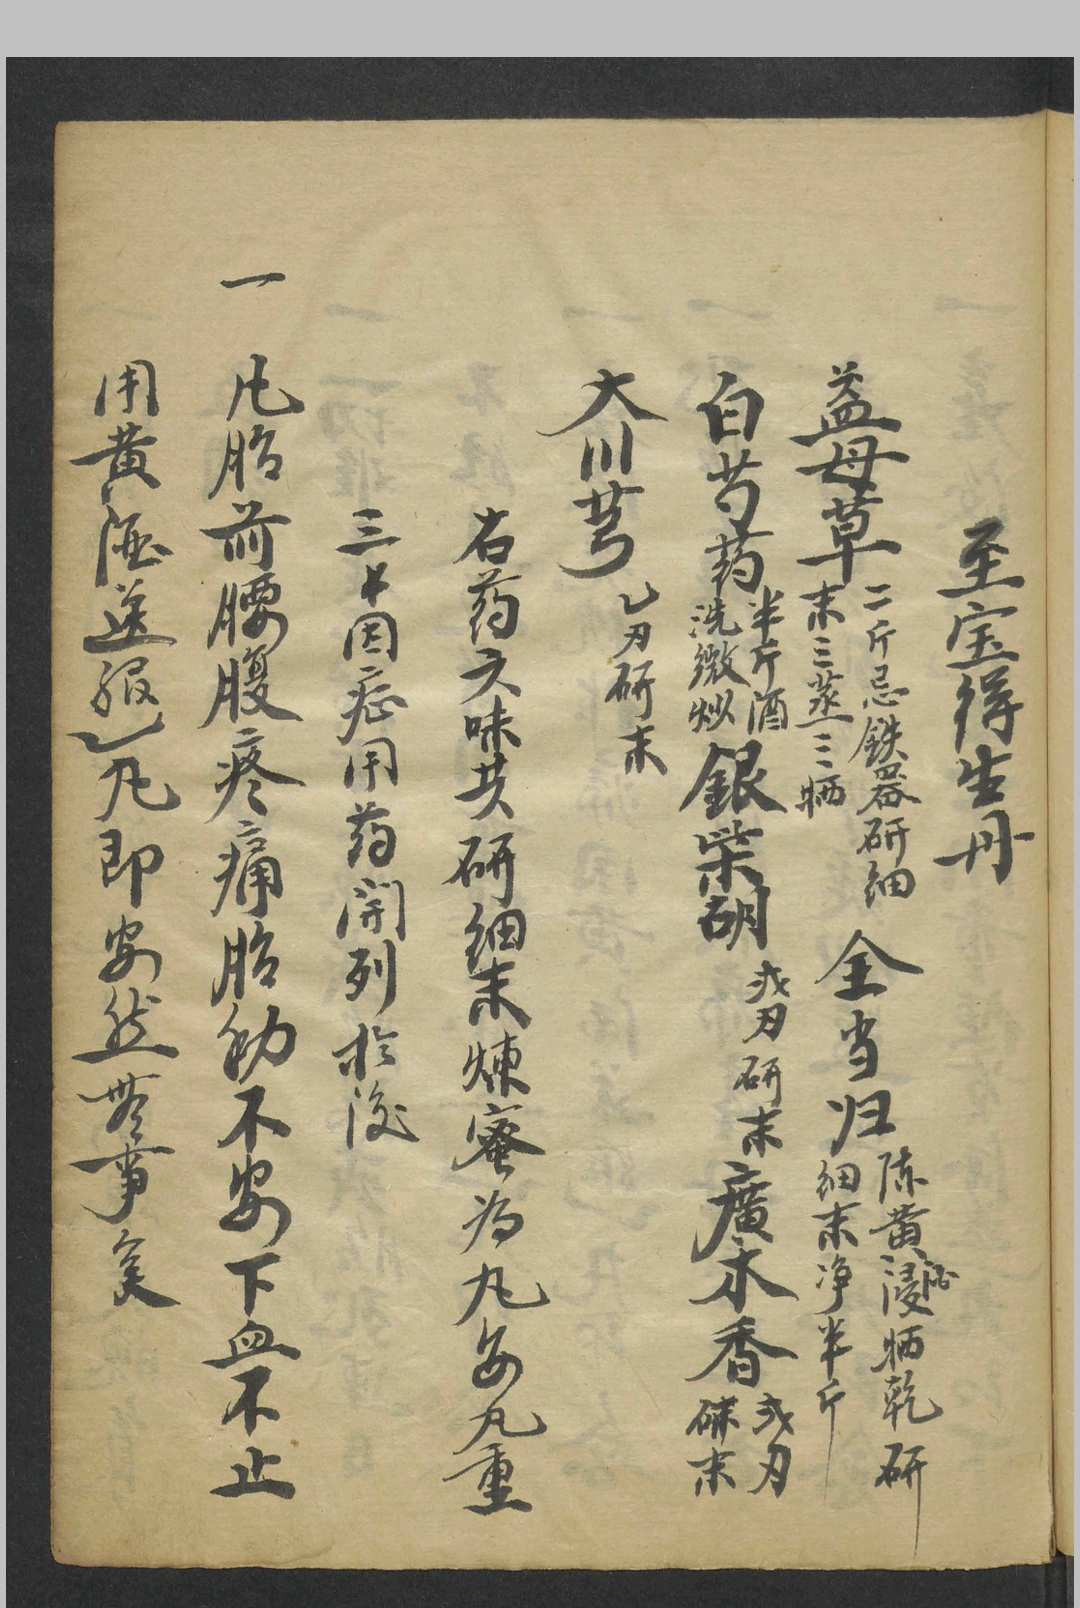 至宝得生丹
益母草 二斤忌鉄器研细末三蒸三晒 全当归 陈黄酒浸晒乾研细末净半斤
白芍药 半斤酒洗微炒 銀柴胡 弍刄研末 廣木香 弍刄研末
大川芎 乙刄研末
右药六味共研细末煉蜜为丸每丸重
三十因症用药開列於後
一 凡胎前腰腹疼痛胎動不安下血不止
用黄酒送服乙丸即安然無事矣